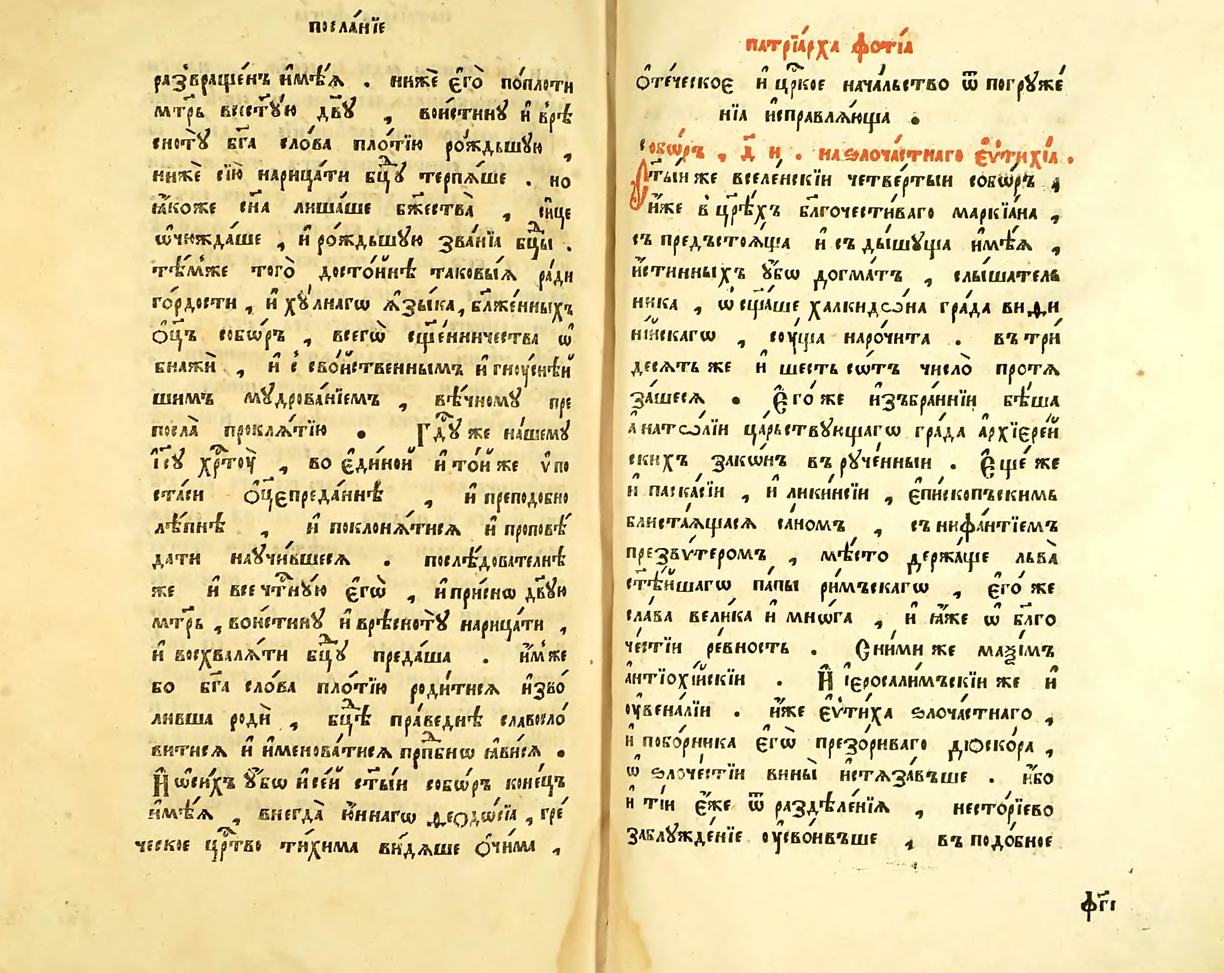 посла́нїе
развраще́нъ и҆мѣ́ѧ . нижѐ є҆го̀ по́плоти
мт҃рь всест҃ꙋ́ю дв҃ꙋ , вои́стинꙋ и҆ врѣ
снотꙋ̀ бг҃а сло́ва пло́тїю ро́ждьшꙋю ,
нижѐ сїю̀ нарица́ти бцⷣꙋ терпѧ́ше . но
ꙗ҆́коже сн҃а лиша́ше бж҃ества̀ , си́це
ѡ҆чюжда́ше , и҆ ро́ждьшꙋю зва́нїа бцⷣы .
тѣ́мже того̀ досто́йнѣ таковы́ѧ ра́ди
го́рдости , и҆ хꙋ́лнагѡ ѧ҆зы́ка , бл҃же́нныхъ
ѻ҆ц҃ъ собѡ́ръ , всегѡ̀ сщ҃е́нничества ѡ҆
бнажѝ , и҆ с̾ сво́йственнымъ и҆ гнꙋснѣ́й
шимъ мꙋдрова́нїемъ , вѣ́чномꙋ пре
посла̀ проклѧ́тїю . Гдⷭ҇ꙋ же на́шемꙋ
і҆и҃сꙋ хрⷭ҇тоу̀ , во є҆ди́ной и҆ то́й же ѵ҆по
ста́си ѻ҆ц҃епреда́ннѣ , и҆ преподобно
лѣ́пнѣ , и҆ поклонѧ́тисѧ и҆ проповѣ́
дати наꙋчи́вшесѧ . послѣ́дователнѣ
же и҆ всечⷭ҇тнꙋ́ю є҆гѡ̀ , и҆ при́снѡ дв҃ꙋю
мт҃рь , вои́стинꙋ и҆ врѣснотꙋ̀ нарица́ти ,
и҆ восхвалѧ́ти бцⷣꙋ преда́ша . и҆́мже
бо бг҃а сло́ва пло́тїю роди́тисѧ и҆зво́
ливша родѝ , бцⷣѣ пра́веднѣ славосло́
витисѧ и҆ и҆менова́тисѧ прпⷣбнѡ ꙗ҆ви́сѧ .
И҆ ѡ҆си́хъ ᲂу҆́бѡ и҆ се́й ст҃ы́и собѡ́ръ коне́цъ
и҆мѣ́ѧ , внегда̀ ю҆́ннагѡ ѳеодѡ́сїа , гре́
ческое црⷭ҇тво ти́хима ви́дѧше ѻ҆чи́ма ,
патрїа́рха фо́тїа
ѻ҆те́ческоє и҆ црⷭ҇кое нача́льство ѿ погрꙋже́
нїа и҆справлѧ́юща .
собѡ́ръ , д҃ и . на ѕлоча́стнаго є҆ѵти́хїа .
Ст҃ы́и же вселе́нскїи четве́ртыи собѡ́ръ ,
и҆́же в цр҃ѣ́хъ бл҃гочести́ваго маркїа́на ,
съ предъстоѧ́ща и҆ съ ды́шꙋща и҆мѣ́ѧ ,
и҆́стинныхъ ᲂу҆́бѡ догма́тъ , слы́шатель
ника , ѡ҆сщ҃а́ше халкидѡ́на гра́да виѳи
ні́искагѡ , соу́ща наро́чита . въ три́
десѧть же и҆ шесть сѡтъ число̀ протѧ
за́шесѧ . Є҆го́же и҆́збраннїи бѣ́ша
анатѡ́лїи ца́рьствꙋющагѡ гра́да а҆рхїере́й
скихъ зако́нъ въ рꙋче́нныи . Є҆ще́ же
и҆ паска́сїи , и҆ лики́нсїи , є҆пи́скопъскимь
блиста́ѧщаѧсѧ са́номъ , съ нифа́нтїемъ
презвѵ́теромъ , мѣ́сто держа́ще льва̀
ст҃ѣ́йшагѡ па́пы ри́мъскагѡ , є҆го́же
сла́ва вели́ка и҆ мнѡ́га , и҆ ꙗ҆́же ѡ҆ бл҃го
че́стїи ре́вность . С ни́ми же маѯі́мъ
а҆нтїохі́йскїи . И҆ і҆еросали́мъскїи же и҆
оу҆вена́лїи . и҆́же є҆ѵти́ха ѕлоча́стнаго ,
и҆ побо́рника є҆гѡ̀ презо́риваго дїоско́ра ,
ѡ҆ ѕлоче́стїи вины̀ и҆стѧза́въше . и҆́бо
и҆ ті́и є҆́же ѿ раздѣле́нїѧ , несто́рїево
заблꙋжде́нїе оу҆сво́ивъше , въ подо́бное
фг҃і